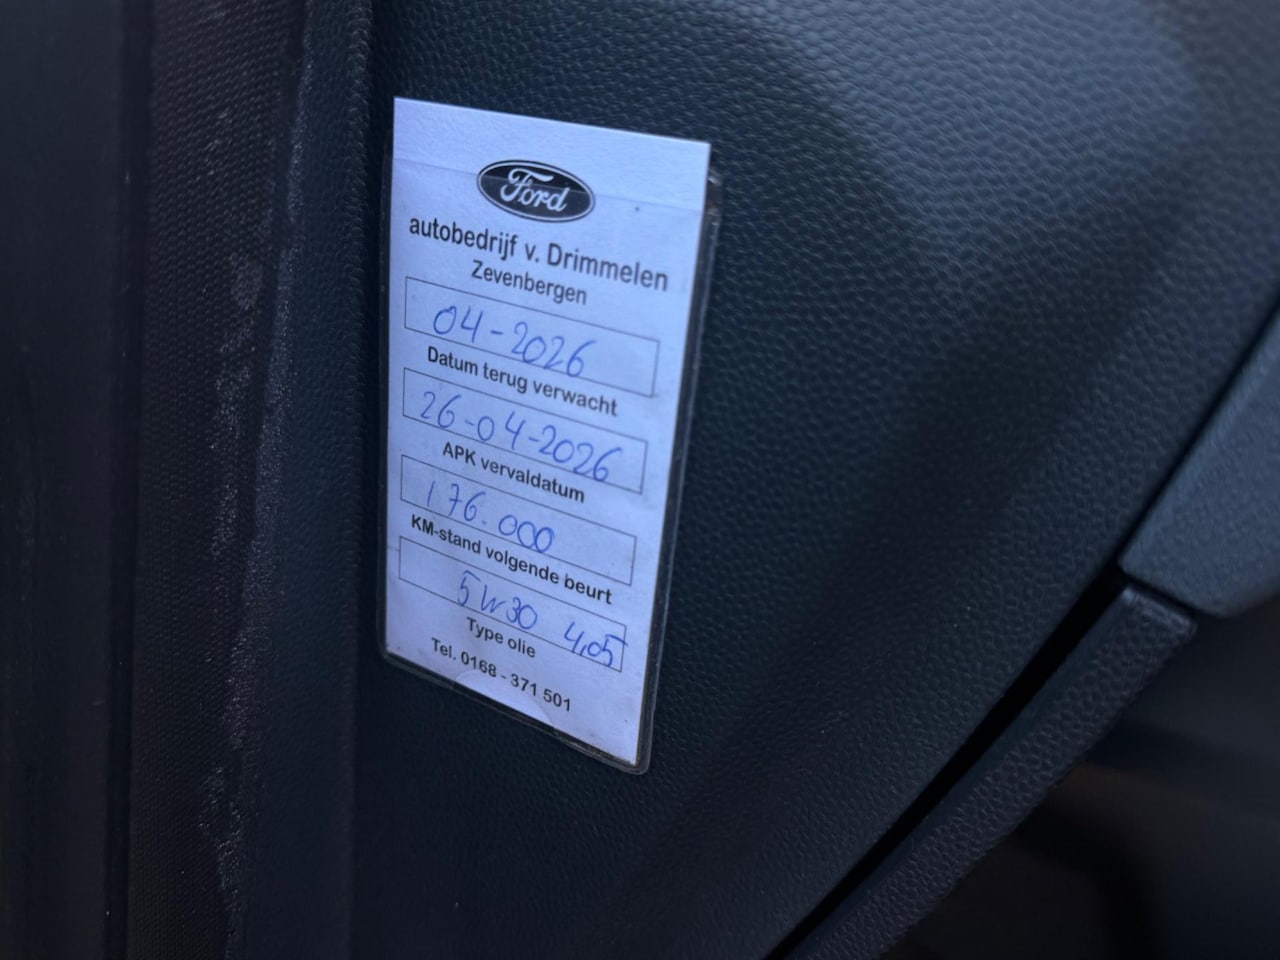 Ford
autobedrijf v. Drimmelen
Zevenbergen
04-2026
Datum terug verwacht
26-04-2026
APK vervaldatum
176.000
KM-stand volgende beurt
5W30 4,05
Type olie
Tel. 0168 - 371 501